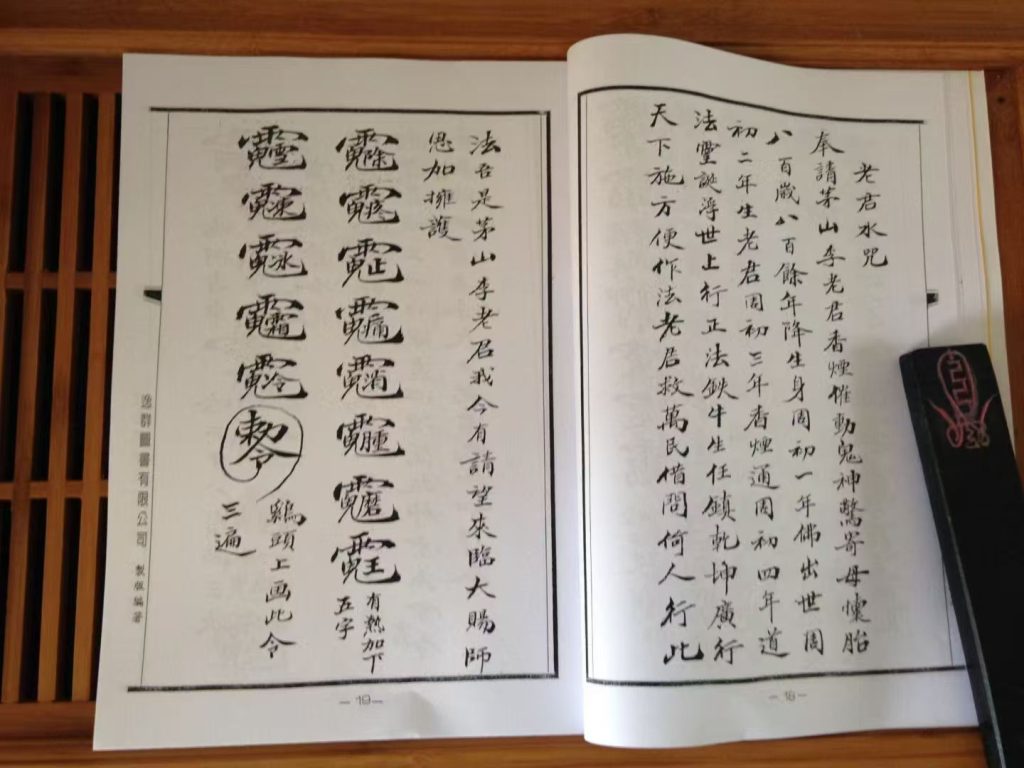 老君水咒
奉請茅山李老君香煙催動鬼神驚寄母懷胎
八百歲八百餘年降生身周初一年佛出世周
初二年生老君周初三年香煙通周初四年道
法靈誕浮世上行正法鉄牛生任鎮乾坤廣行
天下施方便作法老君救萬民借問何人行此
— 18 —
法吾是茅山李老君我今有請望來臨大賜師
恩加擁護
有熱加下
五字
敕令
鷄頭上画此令
三遍
逸群圖書有限公司 製版編著
— 19 —